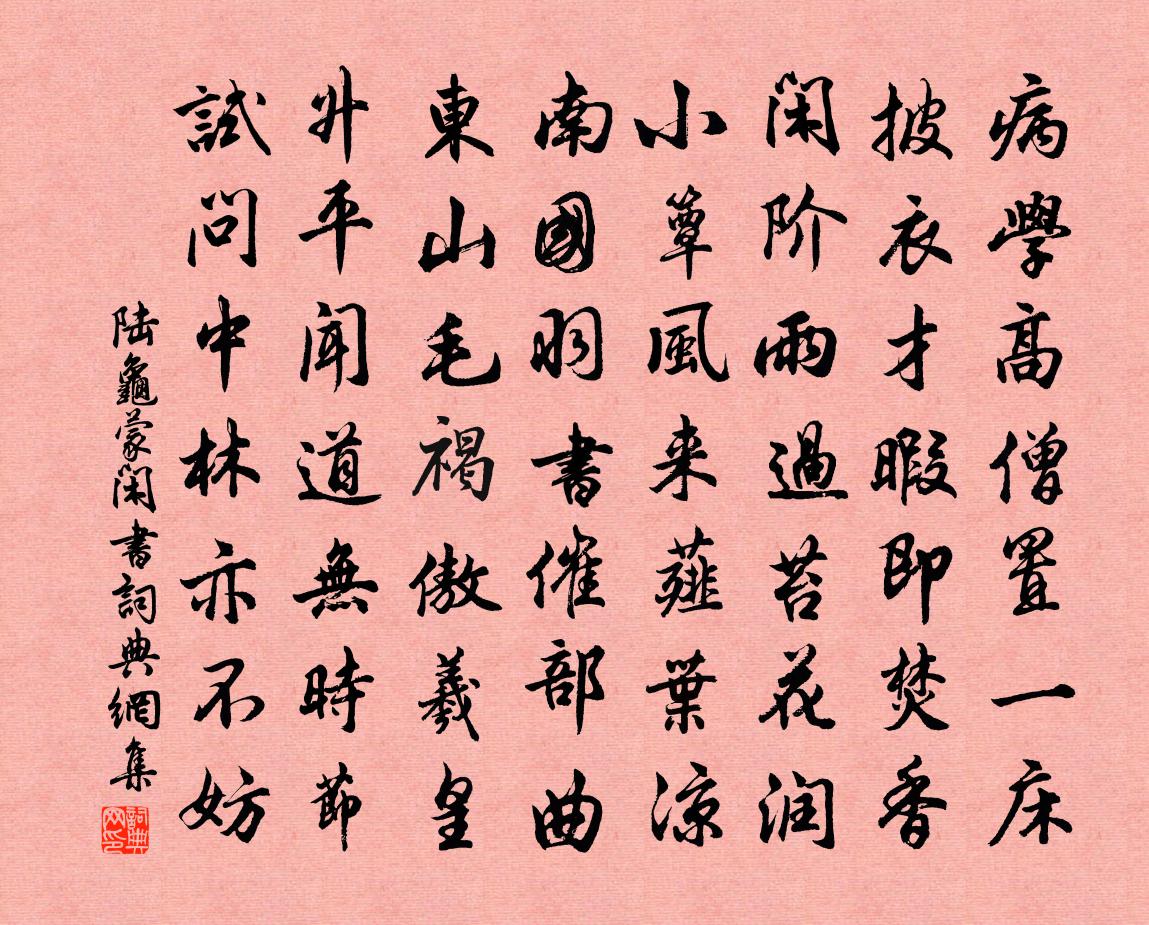 病學高僧置一床
披衣才暇即焚香
闲阶雨過苔花润
小簟風来薤葉涼
南國羽書催部曲
東山毛褐傲羲皇
升平聞道無時節
試問中林亦不妨
陆龜蒙闲書詞典網集
詞典网印